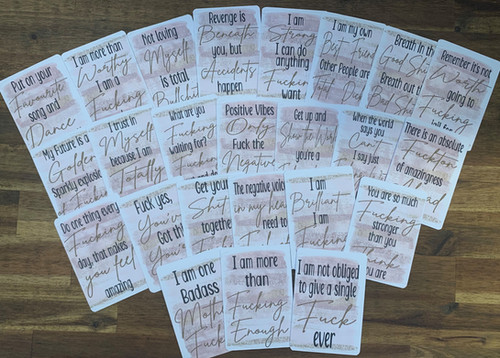 Put on your
Favourite
song and
Dance
I am more than
Worthy
I am a
Fucking
Not loving
Myself
is total
Bullshit
Revenge is
Beneath
you, but
Accidents
happen
I am
Strong
I can do
anything
Fucking
want
I am my own
Best Friend
Other People are
Breath In the
Good Shit
Breath out
Bad Shit
Remember its not
Worth
going to
Fucking
My Future is a
Golden
Sparkly explosion
I trust in
Myself
because I am
Totally
What are you
Fucking
waiting for?
Positive Vibes
Only
Fuck the
Negative
Get up and
Show the World
you're a
When the world
says you
Can't
I say just
There is an absolute
Fuckton
of amazingness
Do one thing every
Fucking
day that makes
you feel
amazing
Fuck yes,
You've
Got th
Get your
Shit
together
The negative voice
in my head
need to
I am
Brilliant
I am
Fucking
You are so much
Fucking
stronger than
you Think
you are
I am one
Badass
Moth
Fuck
I am more
than
Fucking
Enough
I am not obliged
to give a single
Fuck
ever